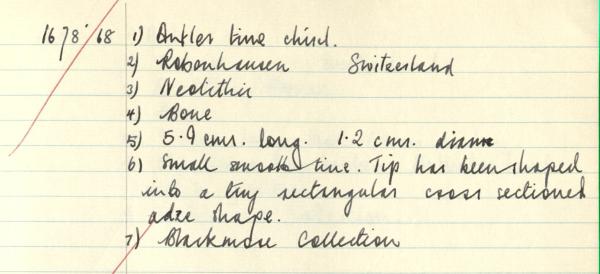 1678'68 1) Antler tine chisel.
2) Robenhausen Switzerland
3) Neolithic
4) Bone
5) 5.9 cms. long. 1.2 cms. diam
6) Small smooth tine. Tip has been shaped
into a tiny rectangular cross sectioned
adze shape.
7) Blackmore Collection